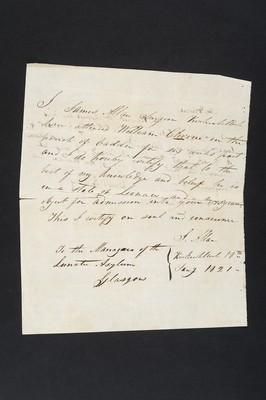 I James Allan Surgeon Kirkintilloch
have attended William in the
parish of Cadder for six weeks past
and I do hereby certify that to the
best of my knowledge and belief he is
in a state of Lunacy and a
object for admission into your
This I certify on soul and conscience
J. Allan
Kirkintilloch 18th
Jany 1821
To the Managers of the
Lunatic Asylum
Glasgow